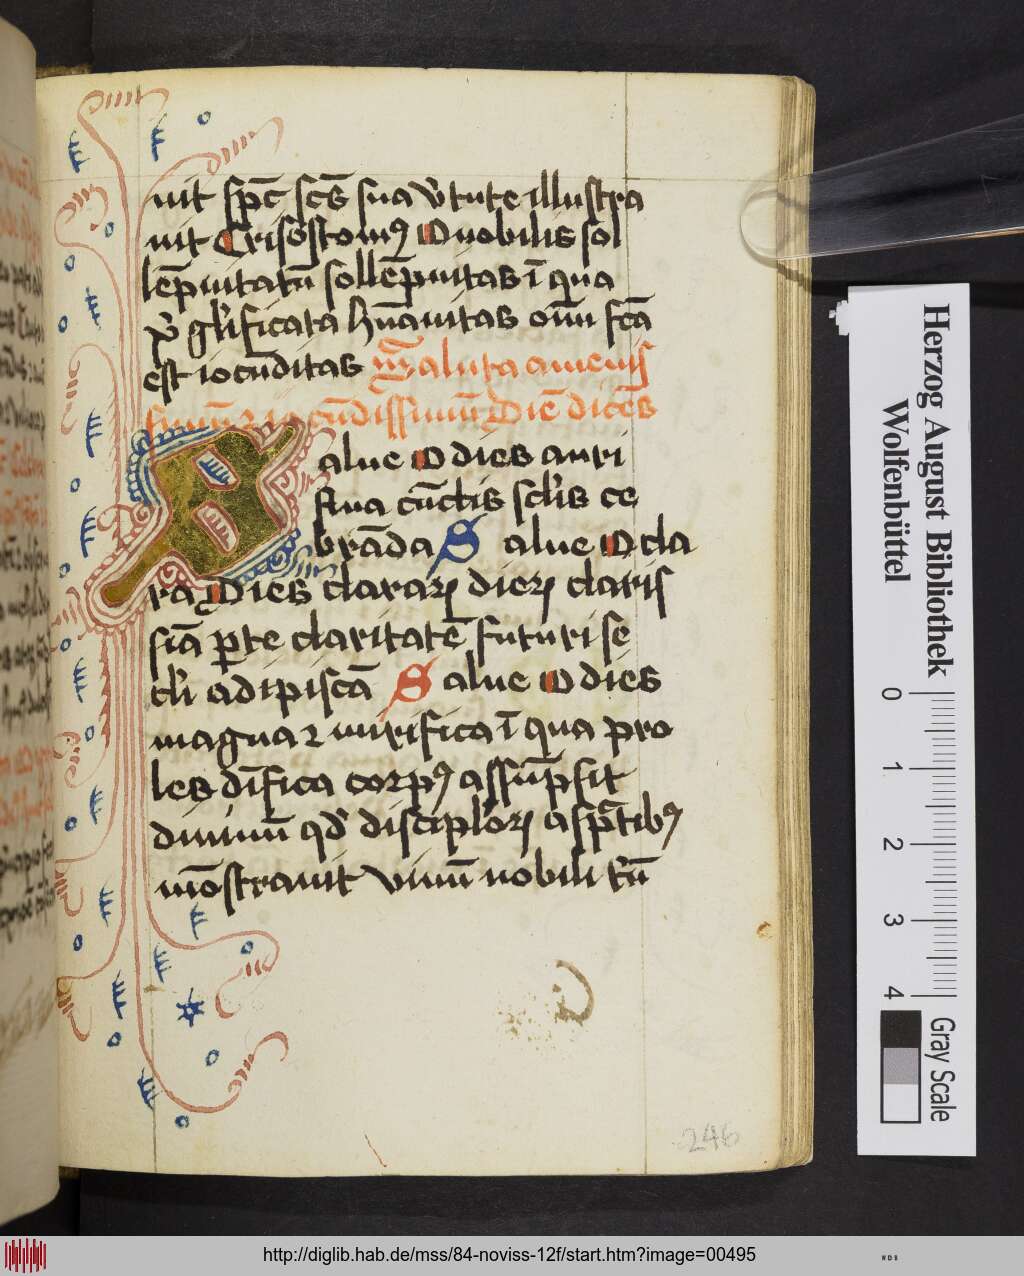 uit spc scs sua vtute illustra
uit Crisostomus O nobilis sol
lepnitatu sollepnitas i qua
glificata huanitas oim fca
est iocuditas Saluta amenis
simu et iocudissimu Die dices
alue O dies auri
flua cuctis sclis ce
brada Salue O cla
ra Dies clarar dier claris
sia p te claritate futuri se
cli adipisca Salue O dies
magna et mirifica i qua pro
les difica corpus assupsit
diuinu qd disciplor aspctibus
mostrauit viuu nobili
246
Herzog August Bibliothek
Wolfenbüttel
0 1 2 3 4
Gray Scale
http://diglib.hab.de/mss/84-noviss-12f/start.htm?image=00495